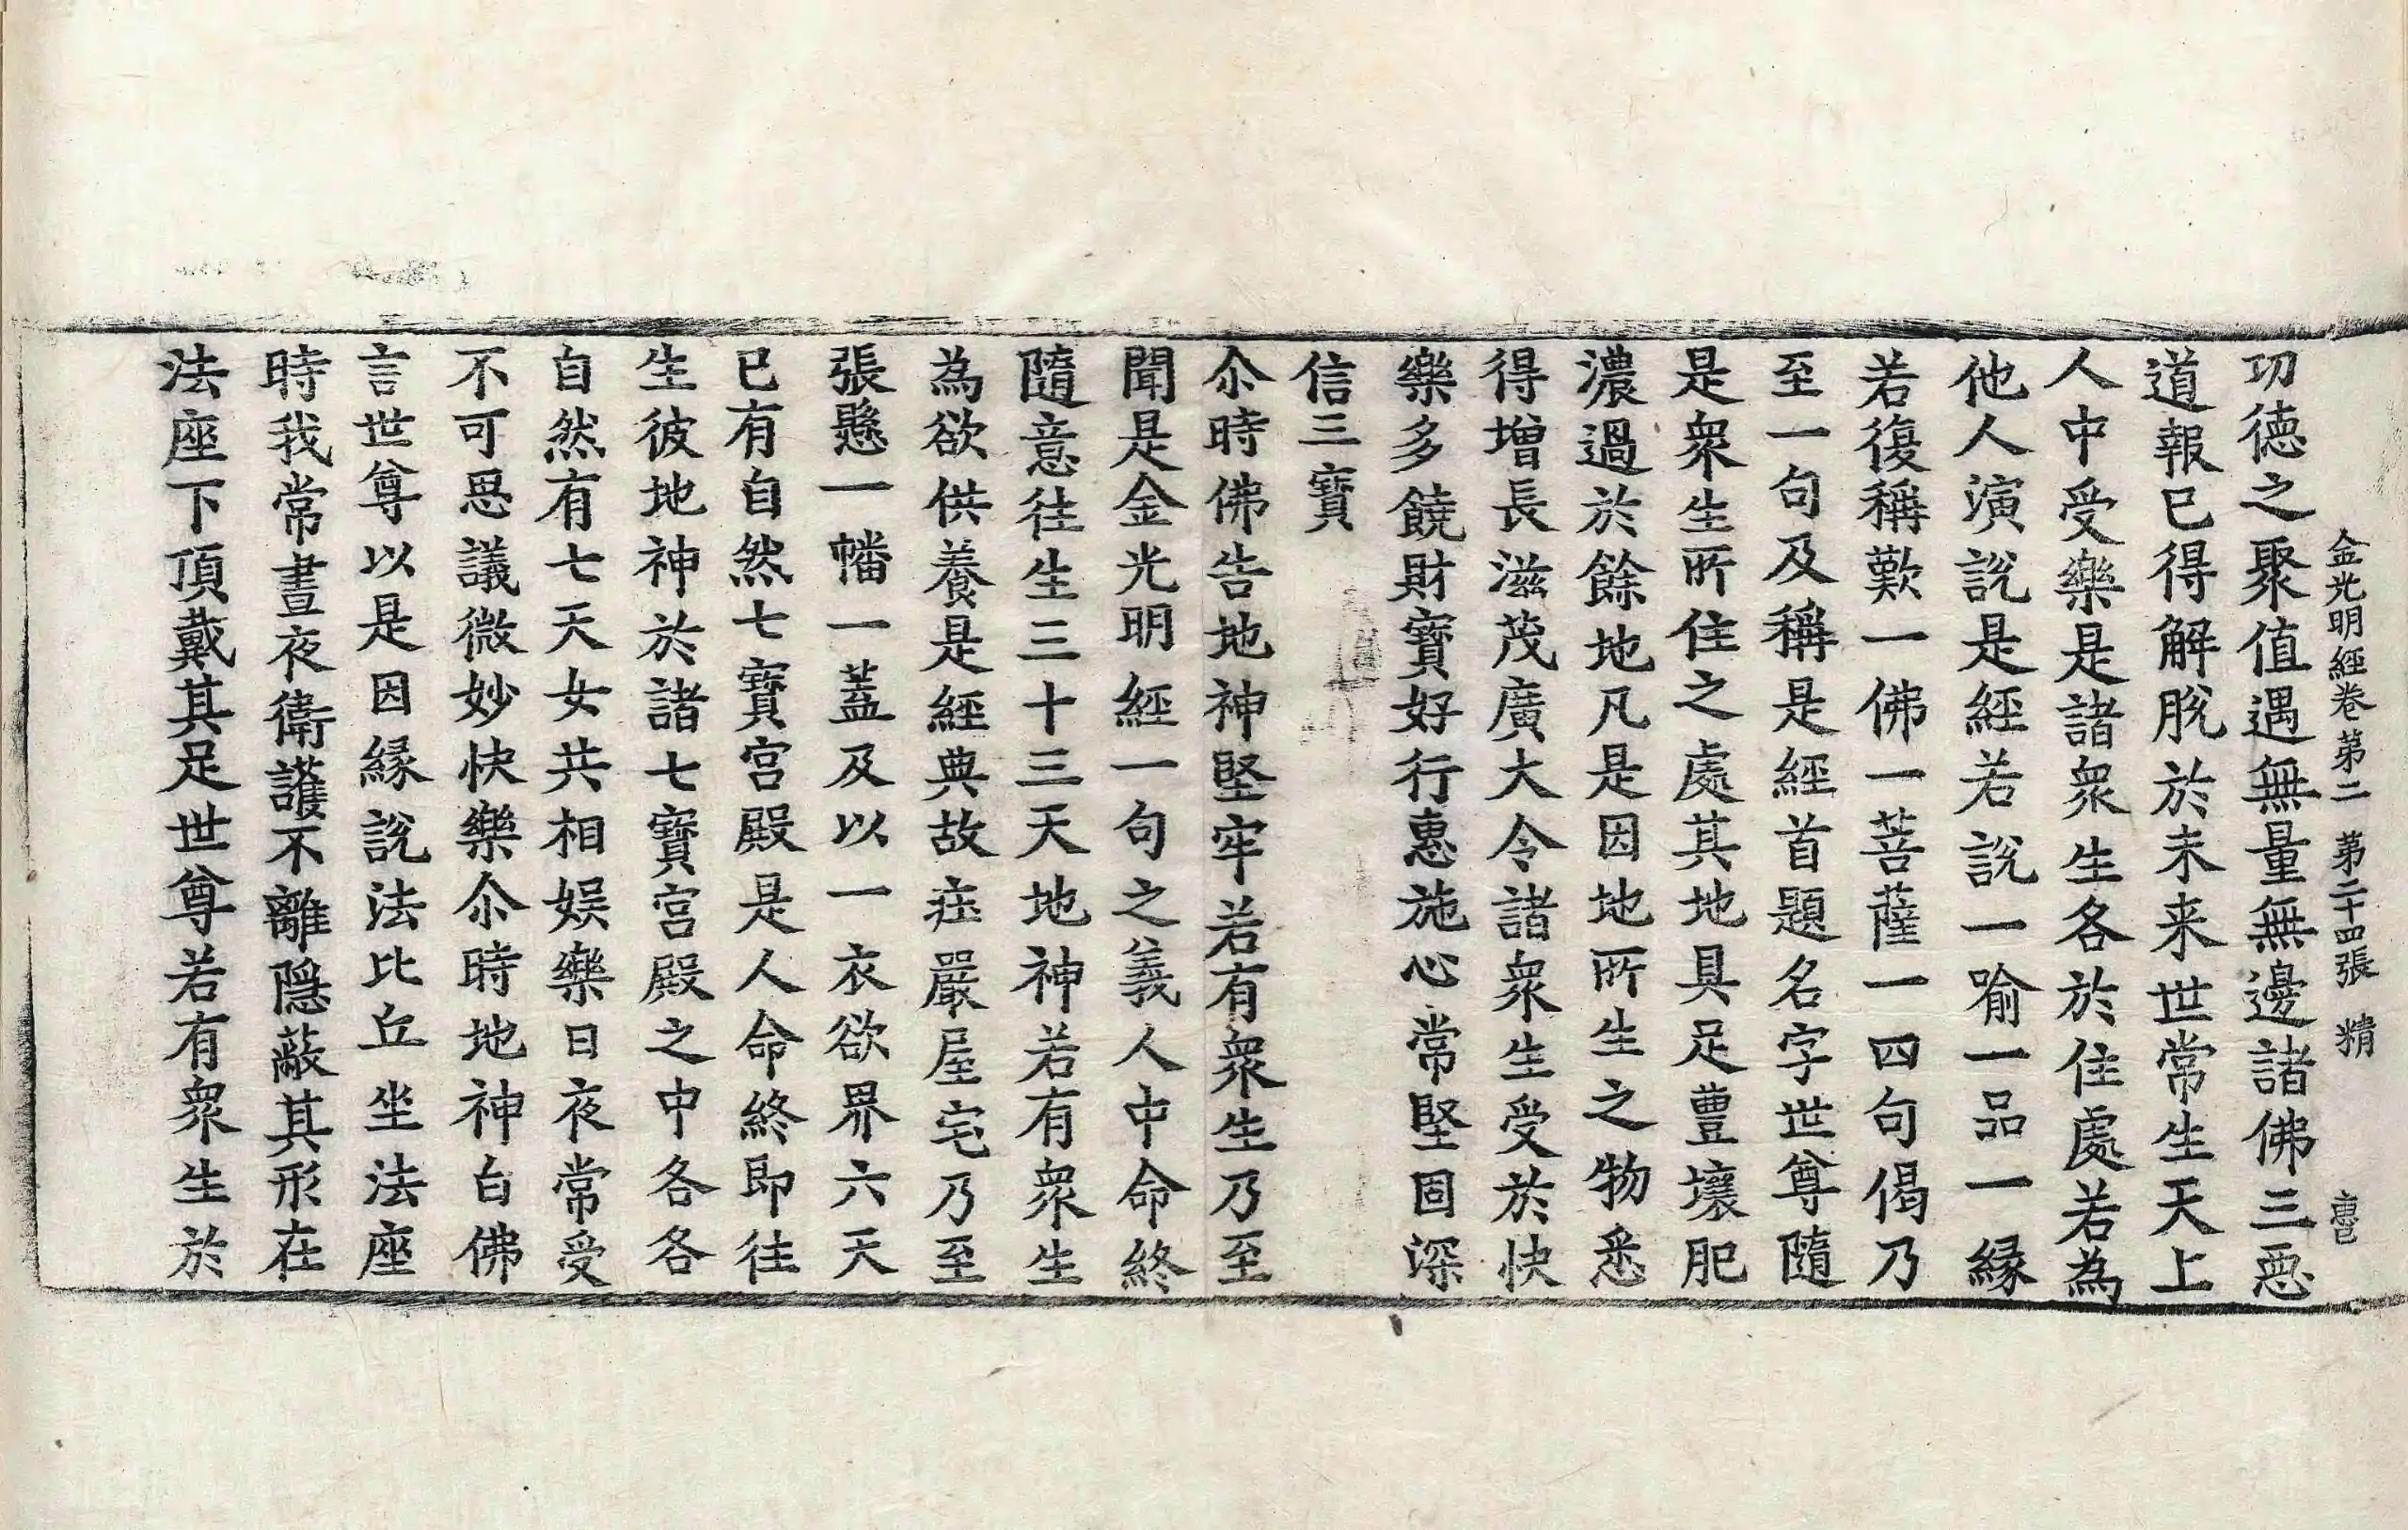 金光明經卷第二 第二十四張 精
功德之聚值遇無量無邊諸佛三惡
道報已得解脫於未来世常生天上
人中受樂是諸衆生各於住處若為
他人演說是經若說一喻一品一縁
若復稱歎一佛一菩薩一四句偈乃
至一句及稱是經首題名字世尊隨
是衆生所住之處其地具足豊壤肥
濃過於餘地凡是因地所生之物悉
得增長滋茂廣大令諸衆生受於快
樂多饒財寶好行惠施心常堅固深
信三寶
尒時佛告地神堅牢若有衆生乃至
聞是金光明經一句之義人中命終
隨意往生三十三天地神若有衆生
為欲供養是經典故莊嚴屋宅乃至
張懸一幡一蓋及以一衣欲界六天
已有自然七寶宮殿是人命終即往
生彼地神於諸七寶宮殿之中各各
自然有七天女共相娛樂日夜常受
不可思議微妙快樂尒時地神白佛
言世尊以是因縁說法比丘坐法座
時我常晝夜衛護不離隱蔽其形在
法座下頂戴其足世尊若有衆生於